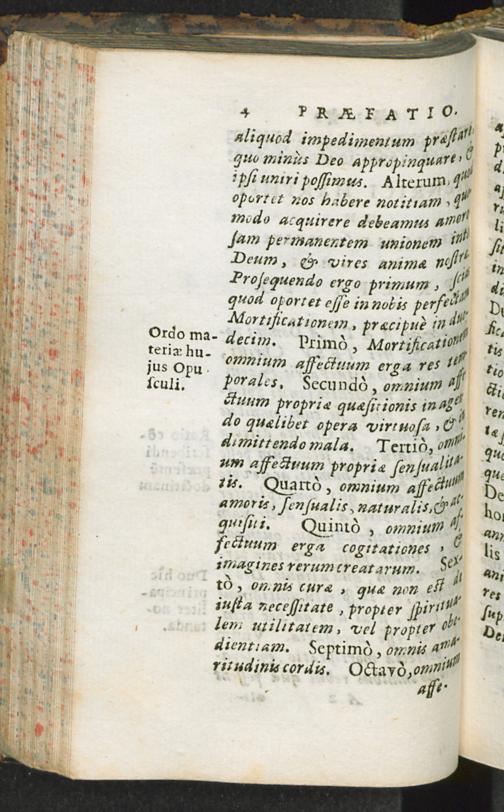 4 PRÆFATIO.
aliquod impedimentum præstare,
quo minùs Deo appropinquare, &
ipsi uniri possimus. Alterum, quod
oportet nos habere notitiam, quo
modo acquirere debeamus amoro
sam permanentem unionem inter
Deum, & vires animæ nostræ.
Prosequendo ergo primum, scias
quod oportet esse in nobis perfectam
Mortificationem, præcipuè in duo-
decim. Primò, Mortificationem
omnium affectuum erga res tem
porales. Secundò, omnium affe
ctuum propriæ quæsitionis in agen
do quælibet opera virtuosa, & in
dimittendo mala. Tertiò, omni-
um affectuum propriæ sensualita-
tis. Quartò, omnium affectuum
amoris, sensualis, naturalis, & ac-
quisiti. Quintò, omnium af-
fectuum erga cogitationes, &
imagines rerum creatarum. Sex-
tò, omnis curæ, quæ non est de
iusta necessitate, propter spiritua-
lem utilitatem, vel propter obe-
dientiam. Septimò, omnis ama-
ritudinis cordis. Octavò, omnium
affe-
Ordo ma-
teriæ hu-
jus Opu
sculi.